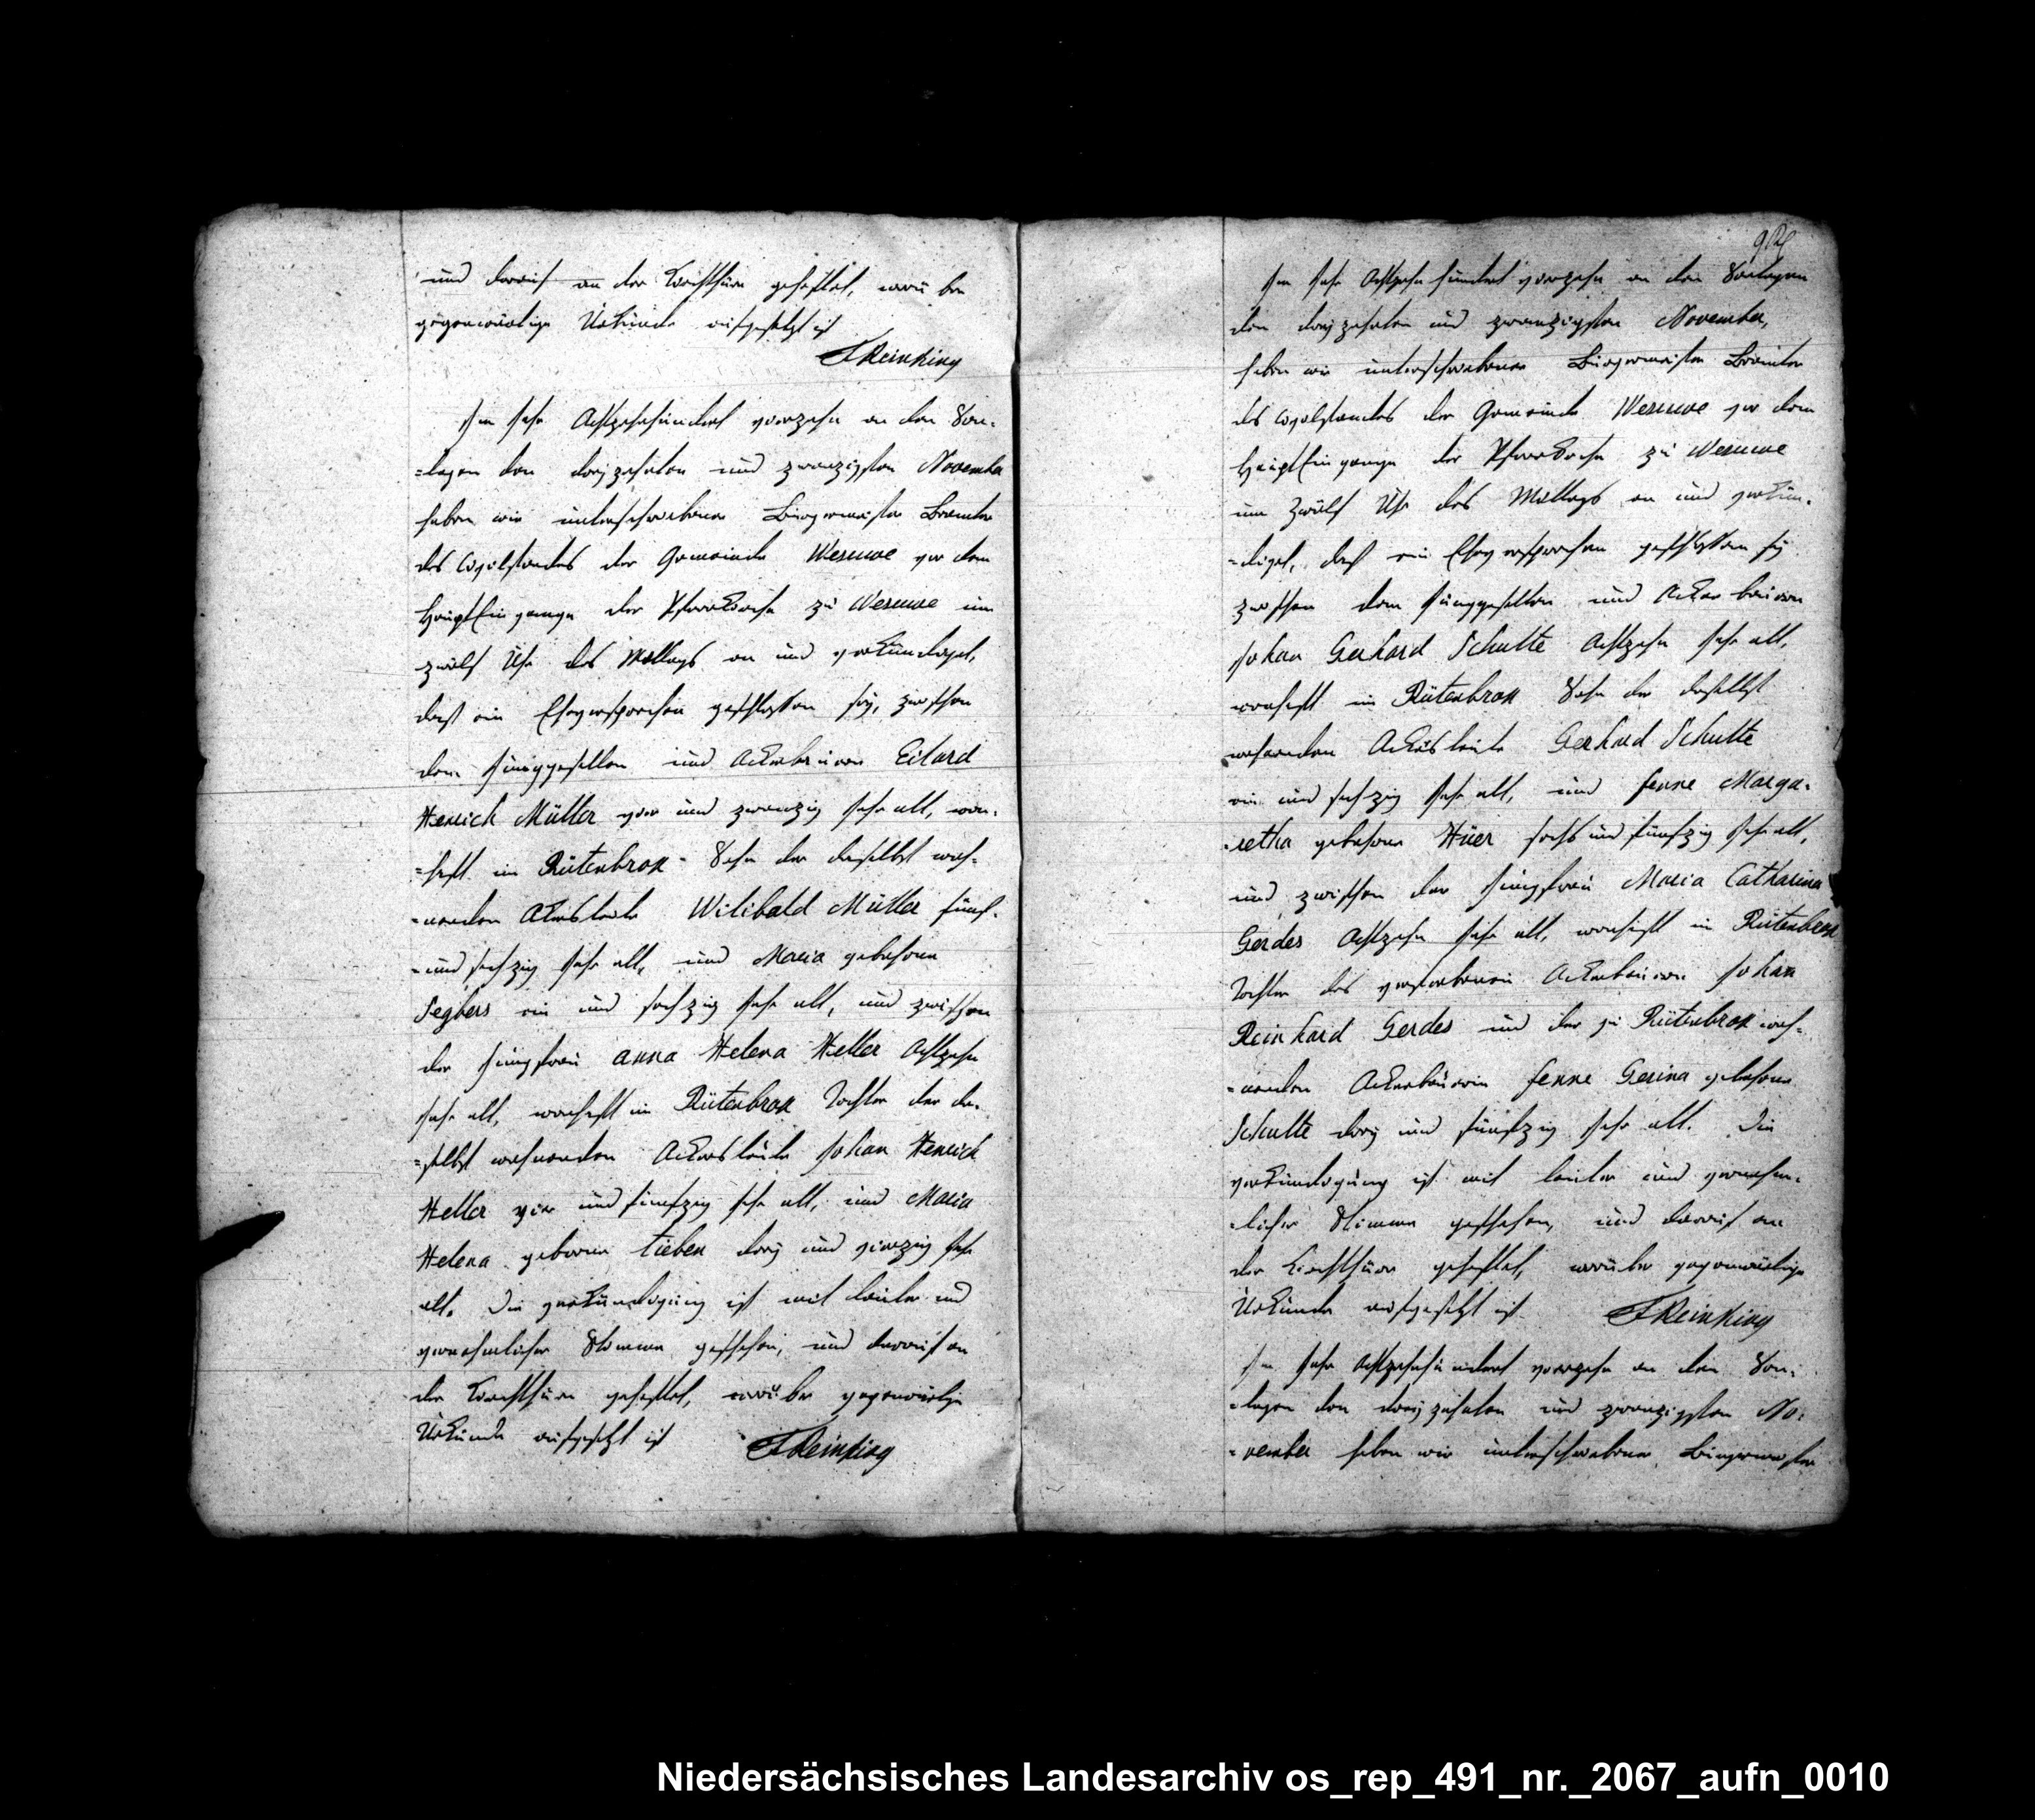 und darauf an der Kirchthüre geheftet, worü ber
gegenwärtige Urkunde aufgesetzt ist
FReinking
Im Jahr Achtzehnhundert vierzehn an den Son-
=tagen den dreizehnten und zwanzigsten November
haben wir unterschriebener Bürgermeister Beamter
des Civilstandes der Gemeinde Wesuwe vor dem
Haupt Eingange der Pfarrkirche zu Wesuwe um
zwölf Uhr des Mittags an und verkündiget,
dass ein Eheversprechen geschlossen sey, zwischen
dem Junggesellen und Ackerbauern Eilard
Henrich Müller vier und zwanzig Jahr alt, won-
=haft in Rütenbrok Sohn der daselbst woh-
=nenden Ackersleute Wilibald Müller fünf-
=und sechzig Jahr alt, und Maria gebohrne
Segbers ein und sechzig Jahr alt, und zwischen
der Jungfrau Anna Helena Heller Achtzehn
Jahr alt, wonhaft in Rütenbrok Tochter der da-
=selbst wohnenden Ackersleute Johan Henrich
Heller vier und fünfzig Jahr alt, und Maria
Helena geborne Tieben drey und vierzig Jahr
alt. Die verkündigung ist mit lauter und
vernehmlicher Stimme geschehen, und darauf an
der Kirchthüre geheftet, worüber gegenwärtige
Urkunde aufgesetzt ist
FReinking
Im Jahr Achtzehn hundert vierzehn an den Sontagen
den dreyzehnten und zwanzigsten November,
haben wir unterschriebener Bürgermeister Beamter
des Civilstandes der Gemeinde Wesuwe vor dem
Haupt Eingange der Pfarrkirche zu Wesuwe
um Zwölf Uhr des Mittags an und verkün-
=diget, dass ein Eheversprechen geschlossen sey
zwischen dem Junggesellen und Ackerbauern
Johan Gerhard Schulte Achtzehn Jahr alt,
wonhaft in Rütenbrok Sohn der daselbst
wohnenden Ackersleute Gerhard Schulte
ein und sechzig Jahr alt, und Fenne Marga-
=retha gebohrne Hüer sechs und fünfzig Jahr alt,
und zwischen der Jungfrau Maria Catharina
Gerdes Achtzehn Jahr alt, wonhaft in Rütenbrok
Tochter des verstorbenen Ackerbauern Johan
Reinhard Gerdes und der zu Rütenbrok woh-
=nenden Ackerbäuerin Fenne Gesina gebohrne
Schulte drey und fünfzig Jahr alt. Die
verkündigung ist mit lauter und vernehm-
=licher Stimme geschehen, und darauf an
der Kirchthüre geheftet, worüber gegenwärtige
Urkunde aufgesetzt ist FReinking
Im Jahr Achtzehnhundert vierzehn an den Son-
=tagen den dreyzehnten und zwanzigsten No-
=vember haben wir unterschriebener Bürgermeister
Niedersächsisches Landesarchiv os_rep_491_nr._2067_aufn_0010